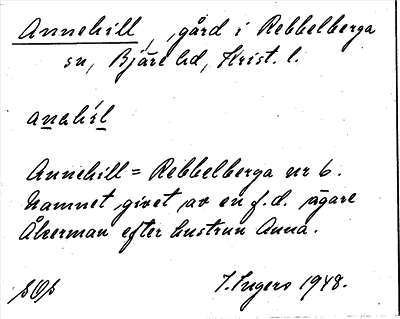 Annehill, gård i Rebbelberga
sn, Bjäre hd, Krist. l.
anahíl
Annehill = Rebbelberga nr 6.
Namnet givet av en f.d. ägare
Åkerman efter hustrun Anna.
I. Ingers 1948.